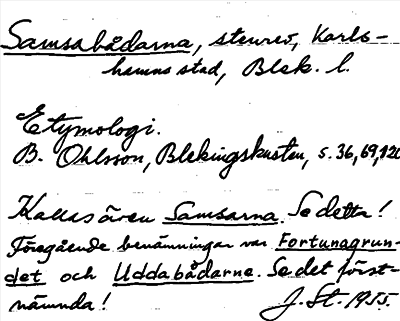 Samsabådarna, stenrev, Karls-
hamns stad, Blek. l.
Etymologi.
B. Ohlsson, Blekingskusten, s. 36, 69, 120
Kallas även Samsarna. Se detta!
Föregående benämningar var Fortunagrun-
det och Uddabådarne. Se det först-
nämnda! J. St. 1955.